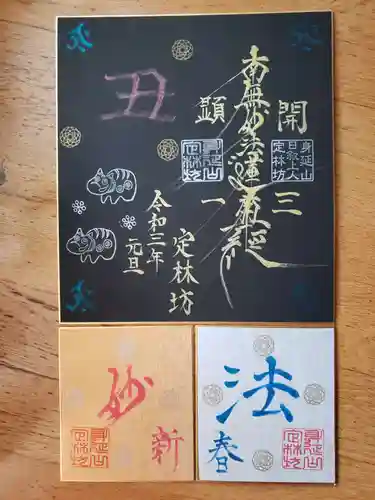 丑
開
三
南無妙法蓮華経
顕
一
身延山
日叡上人
定林坊
身延山
定林坊
令和三年
元旦
定林坊
妙
新
身延山
定林坊
法
春
身延山
定林坊